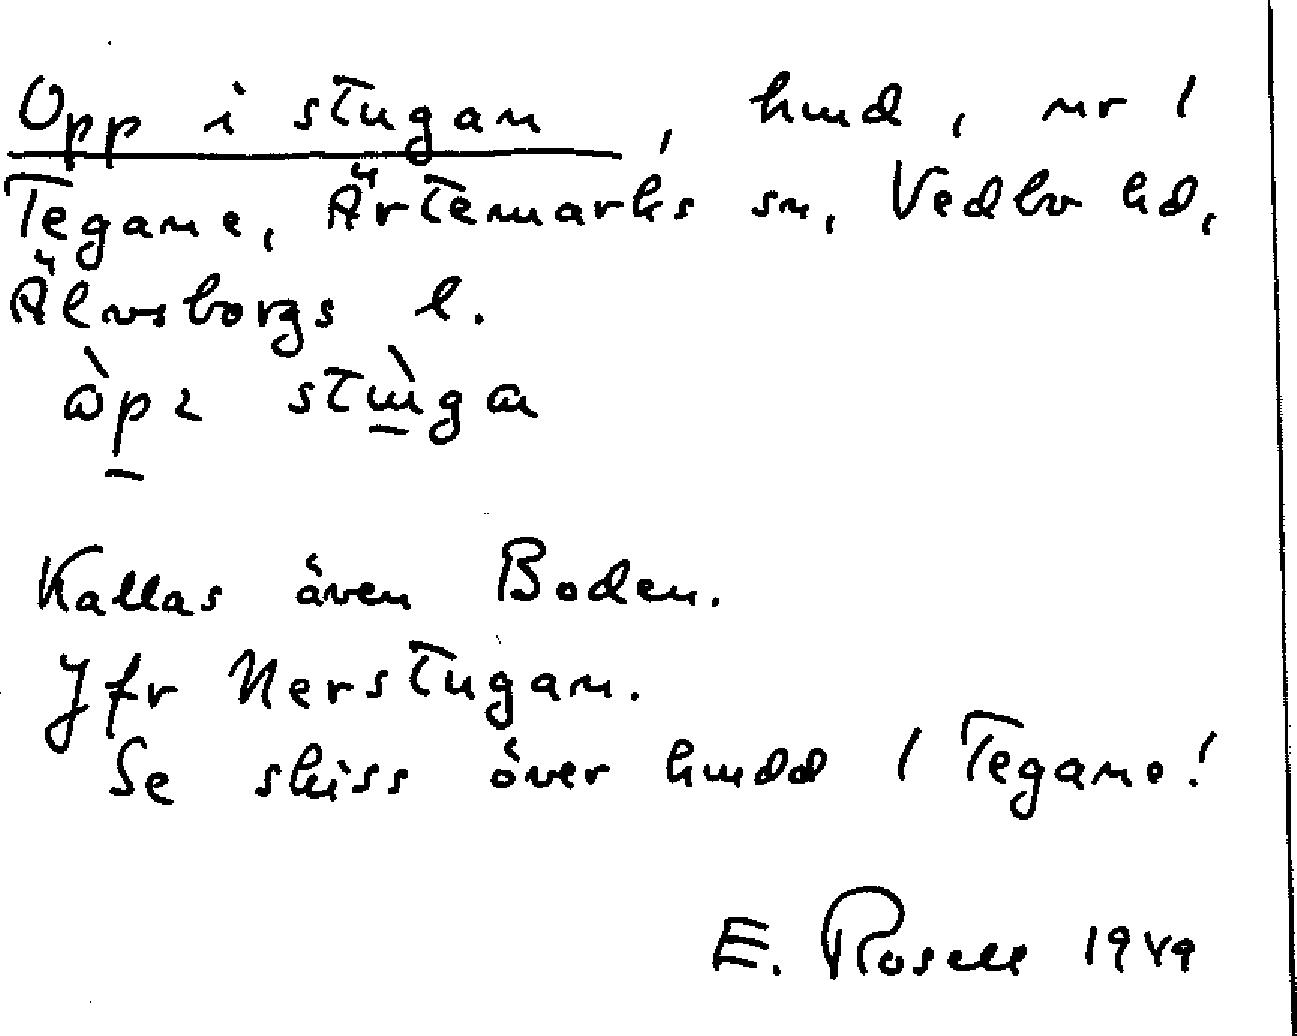 Opp i stugan, hmd, nr 1
Tegane, Ärtemarks sn, Vedbo hd,
Älvsborgs l.
Kallas även Boden.
Jfr Nerstugan.
Se skiss över hmdd 1 Tegane!
E. Rosell 1949